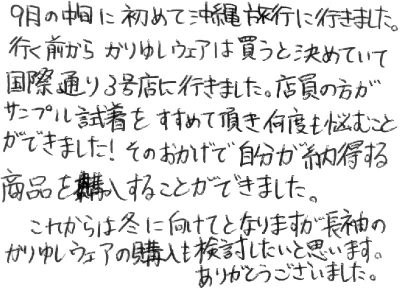 9月の中旬に初めて沖縄旅行に行きました。
行く前からかりゆしウェアは買うと決めていて
国際通り3号店に行きました。店員の方が
サンプル試着をすすめて頂き何度も悩むこと
ができました!そのおかげで自分が納得する
商品を購入することができました。
これからは冬に向けてとなりますが長袖の
かりゆしウェアの購入も検討したいと思います。
ありがとうございました。